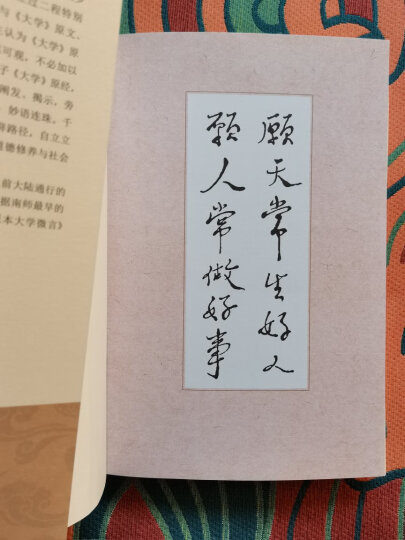 过二程特别
与《大学》原文、
E认为《大学》原
可观，不必加以
子《大学》原经，
阐发、揭示，旁
妙语连珠，千
辟路径，自立立
道德修养与社会
前大陆通行的
据南师最早的
原本大学微言》
愿天常生好人
願人常做好事